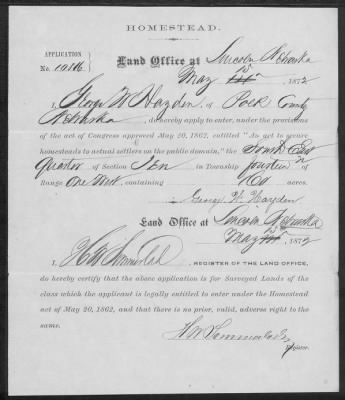 HOMESTEAD.
APPLICATION
No. 10816
Land Office at Lincoln Nebraska
May 15 1872
I, George W Hayden of Polk County
Nebraska do hereby apply to enter, under the provisions
of the act of Congress approved May 20, 1862, entitled "An act to secure
homesteads to actual settlers on the public domain," the South East
Quarter of Section Ten in Township fourteen N
Range One West, containing 160 acres.
George W. Hayden
Land Office at Lincoln Nebraska
May 15 1872
I, REGISTER OF THE LAND OFFICE,
do hereby certify that the above application is for Surveyed Lands of the
class which the applicant is legally entitled to enter under the Homestead
act of May 20, 1862, and that there is no prior, valid, adverse right to the
same.
Register.